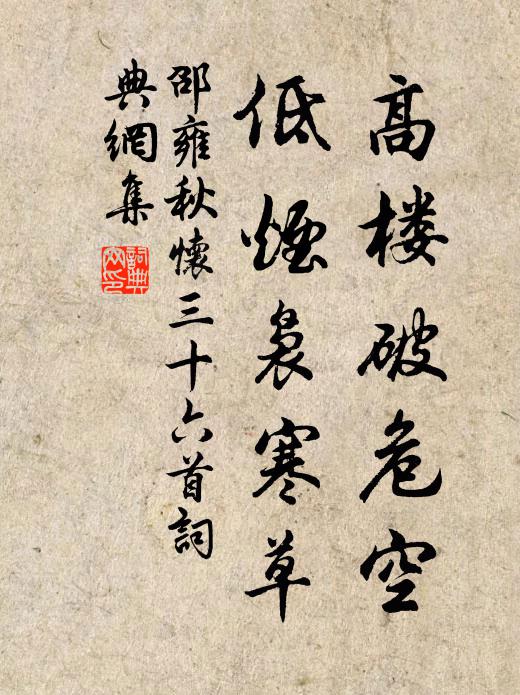 高楼破危空
低煙裊寒草
邵雍秋懷三十六首詞
典網集
詞典
网印